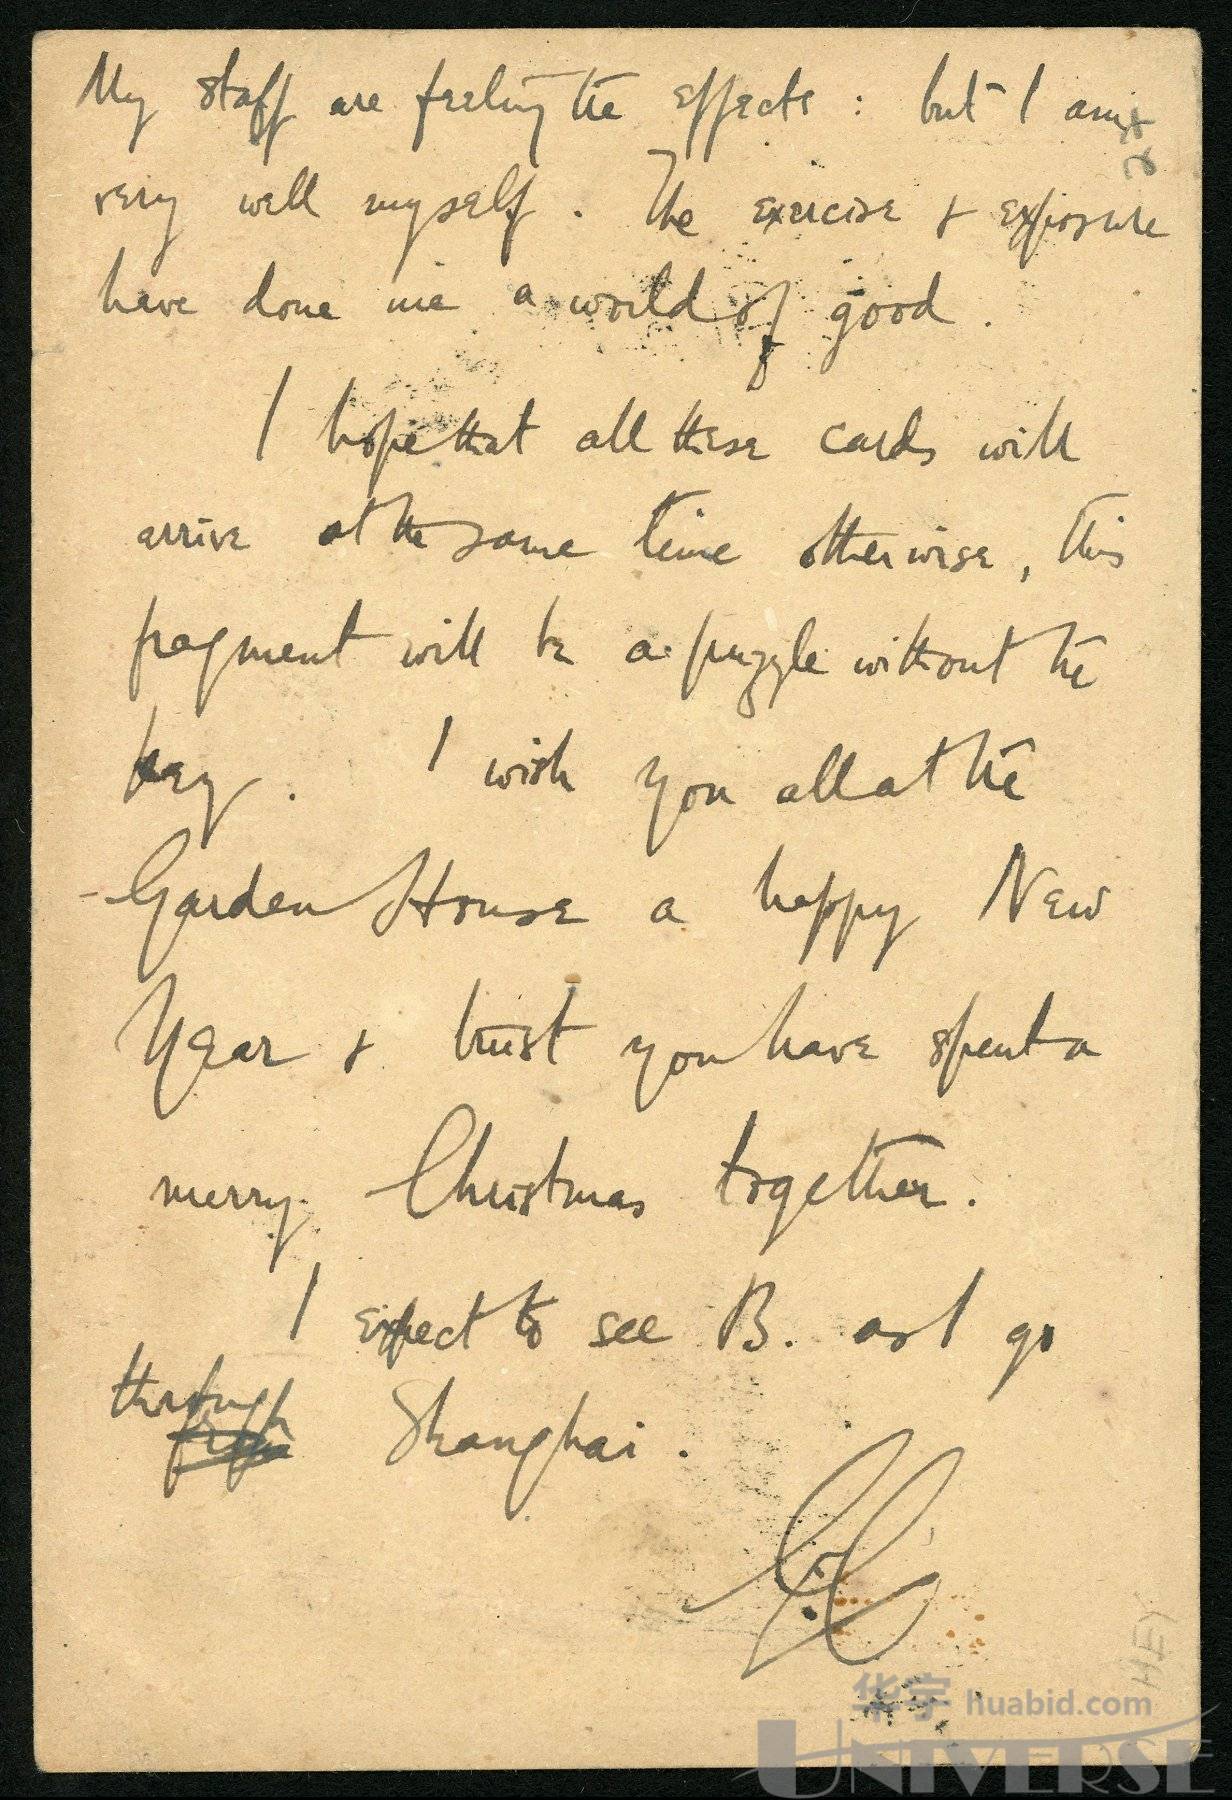 My staff are feeling the effects : but I am
very well myself . The exercise & exposure
have done me a world of good .
I hope that all these cards will
arrive at the same time otherwise, this
fragment will be a puzzle without the
key . I wish you all at the
Garden House a happy New
Year & trust you have spent a
merry Christmas together.
I expect to see B. as I go
through Shanghai .
HEY
华宇 huabid.com
UNIVERSE